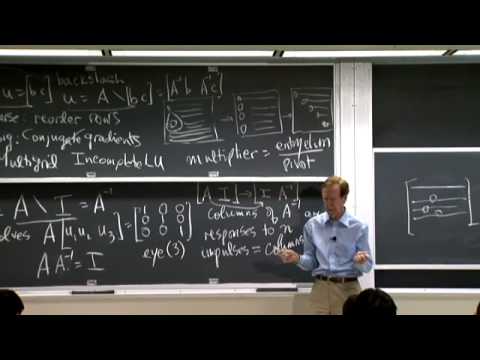 u = [b c] backslash
u = A \ [b c] = [A⁻¹b A⁻¹c]
reorder rows
Conjugate gradients
Multigrid Incomplete LU
multiplier = entry elim
pivot
A \ I = A⁻¹
[A I] → [I A⁻¹]
A [u₁ u₂ u₃] = [1 0 0
0 1 0
0 0 1]
eye(3)
A A⁻¹ = I
Columns of A⁻¹ are
responses to n
impulses = columns